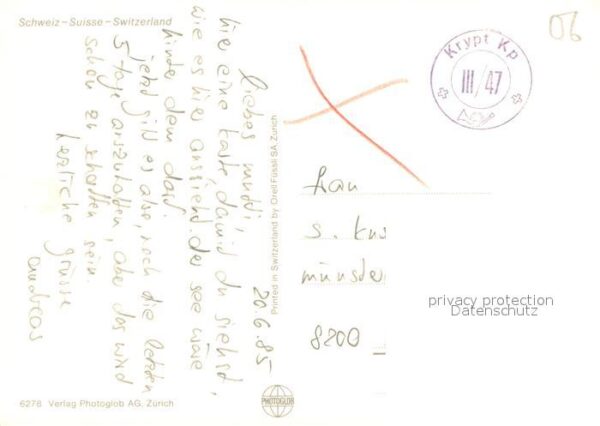 Schweiz – Suisse – Switzerland
06
Krypt Kp
III/47
20.6.85
liebes mutti,
hie eine karte damit du siehst,
wie es hier aussieht. der see wäre
hinter dem dorf.
jetzt gilt es also, noch die letzten
5 tage auszuhalten, aber das wird
schon zu schaffen sein.
herzliche grüsse
andreas
Printed in Switzerland by Orell Füssli SA, Zürich
frau
s. kus
münster
8200
privacy protection
Datenschutz
6278 Verlag Photoglob AG, Zürich
PHOTOGLOB